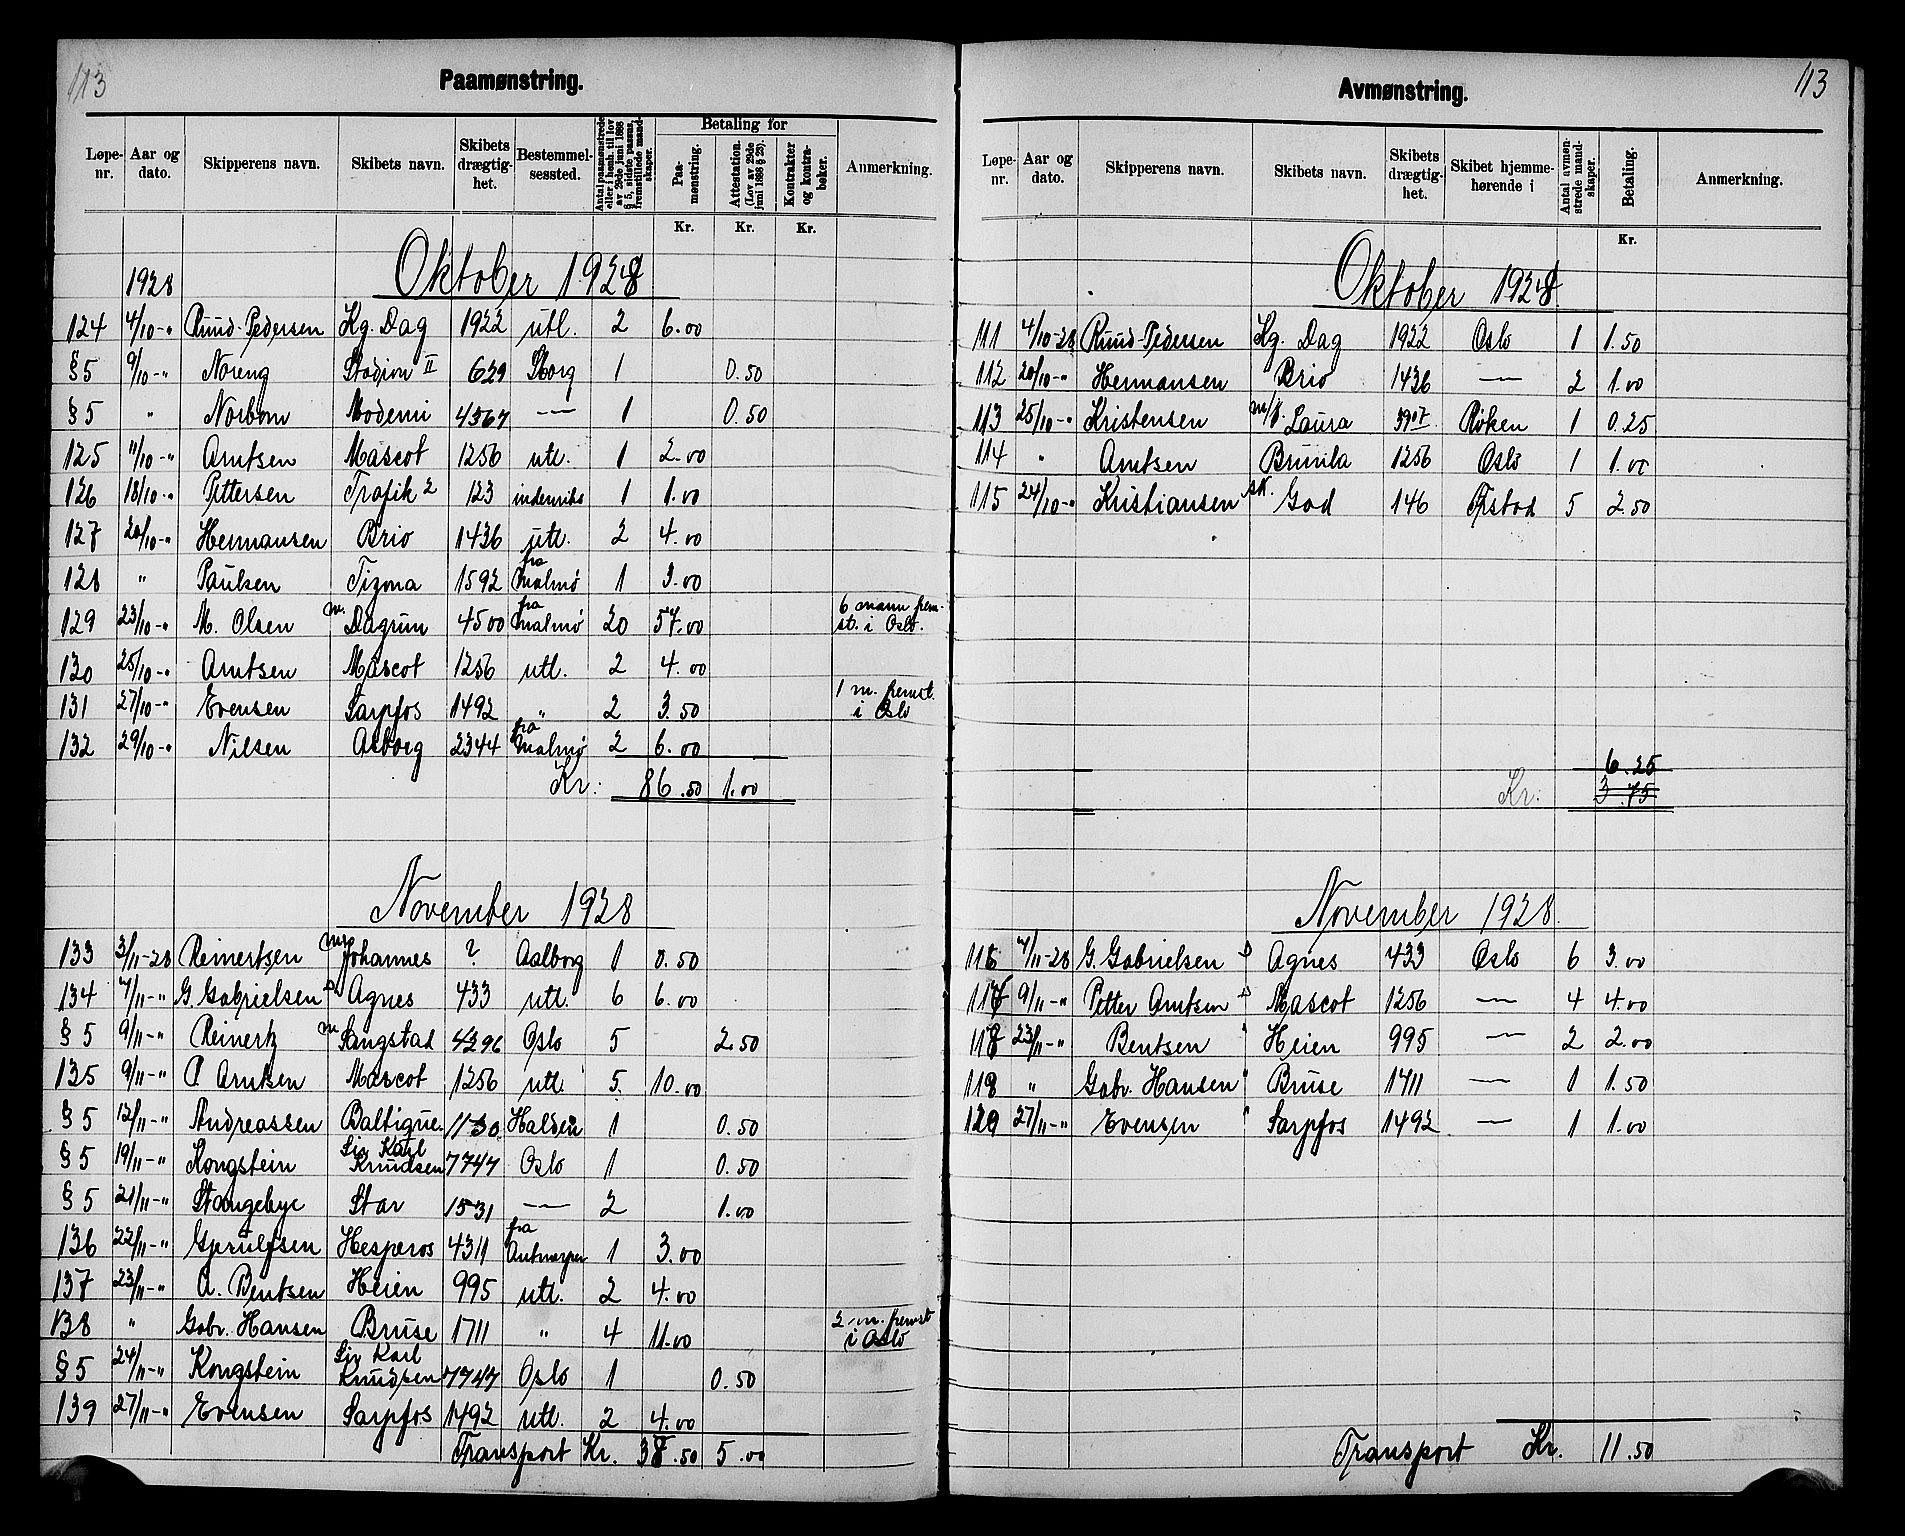 113
Paamønstring.
Løpe-nr. Aar og dato. Skipperens navn. Skibets navn. Skibets drægtig-het. Bestemmel-sessted. Antal paamønstrede eller i henh. til lov av 29de juni 1888 § 5, sidste passus, fremstillede mand-skaper. Betaling for Paa-mønstring. Attestation. (Lov av 29de juni 1888 § 23). Kontrakter og kontra-bøker. Anmerkning.
Kr. Kr. Kr.
1928 Oktober 1928
124 4/10-" Ruud-Pedersen Kg. Dag 1922 utl. 2 6.00
§5 9/10-" Noreng Stadion II 629 Sborg 1 0.50
§5 " Norbom Modemi 4567 — 1 0.50
125 11/10-" Arntsen Mascot 1256 utl. 1 2.00
126 18/10-" Pettersen Trafik 2 123 indenriks 1 1.00
127 20/10-" Hermansen Brio 1436 utl. 2 4.00
128 " Paulsen Tizona 1592 fra Malmø 1 3.00
129 23/10-" M. Olsen m. Dagrun 4500 fra Malmø 20 57.00 6 mann frem-st. i Oslo.
130 25/10-" Arntsen Mascot 1256 utl. 2 4.00
131 27/10-" Evensen Sarpfos 1492 " 2 3.50 1 m. fremst. i Oslo
132 29/10-" Nilsen Asborg 2344 fra Malmø 2 6.00
Kr: 86.50 1.00
November 1928
133 3/11-28 Reinertsen Johannes ? Aalborg 1 0.50
134 7/11-" G. Gabrielsen D Agnes 433 utl. 6 6.00
§5 9/11-" Reinertz m Sangstad 4296 Oslo 5 2.50
135 9/11-" P. Arntsen Mascot 1256 utl. 5 10.00
§5 12/11-" Andreassen Baltique 1130 Halden 1 0.50
§5 19/11-" Kongstein Siv Karl Knudsen 7747 Oslo 1 0.50
§5 21/11-" Stangebye Star 1531 — 2 1.00
136 22/11-" Gjerulfsen Hesperos 4311 fra Antwerpen 1 3.00
137 23/11-" A. Bentsen Heien 995 utl. 2 4.00
138 " Gabr. Hansen Bruse 1711 " 4 11.00 2 m. fremst i Oslo
§5 24/11-" Kongstein Siv Karl Knudsen 7747 Oslo 1 0.50
139 27/11-" Evensen Sarpfos 1492 utl. 2 4.00
Transport Kr. 38.50 5.00
113
Avmønstring.
Løpe-nr. Aar og dato. Skipperens navn. Skibets navn. Skibets drægtig-het. Skibet hjemme-hørende i Antal avmøn-strede mand-skaper. Betaling. Anmerkning.
Kr.
Oktober 1928.
111 4/10-28 Ruud-Pedersen Kg. Dag 1922 Oslo 1 1.50
112 20/10-" Hermansen Brio 1436 — 2 1.00
113 25/10-" Kristensen Laura 3907 Røken 1 0.25
114 " Arntsen Brunla 1256 Oslo 1 1.00
115 24/10-" Kristiansen sk. God 146 Fstad 5 2.50
6.25
Kr: 3.75
November 1928.
116 7/11-28 G. Gabrielsen D Agnes 433 Oslo 6 3.00
117 9/11-" Petter Arntsen D Mascot 1256 — 4 4.00
118 23/11-" Bentsen " Heien 995 — 2 2.00
119 " Gabr. Hansen " Bruse 1711 — 1 1.50
120 27/11-" Evensen " Sarpfos 1492 — 1 1.00
Transport Kr. 11.50